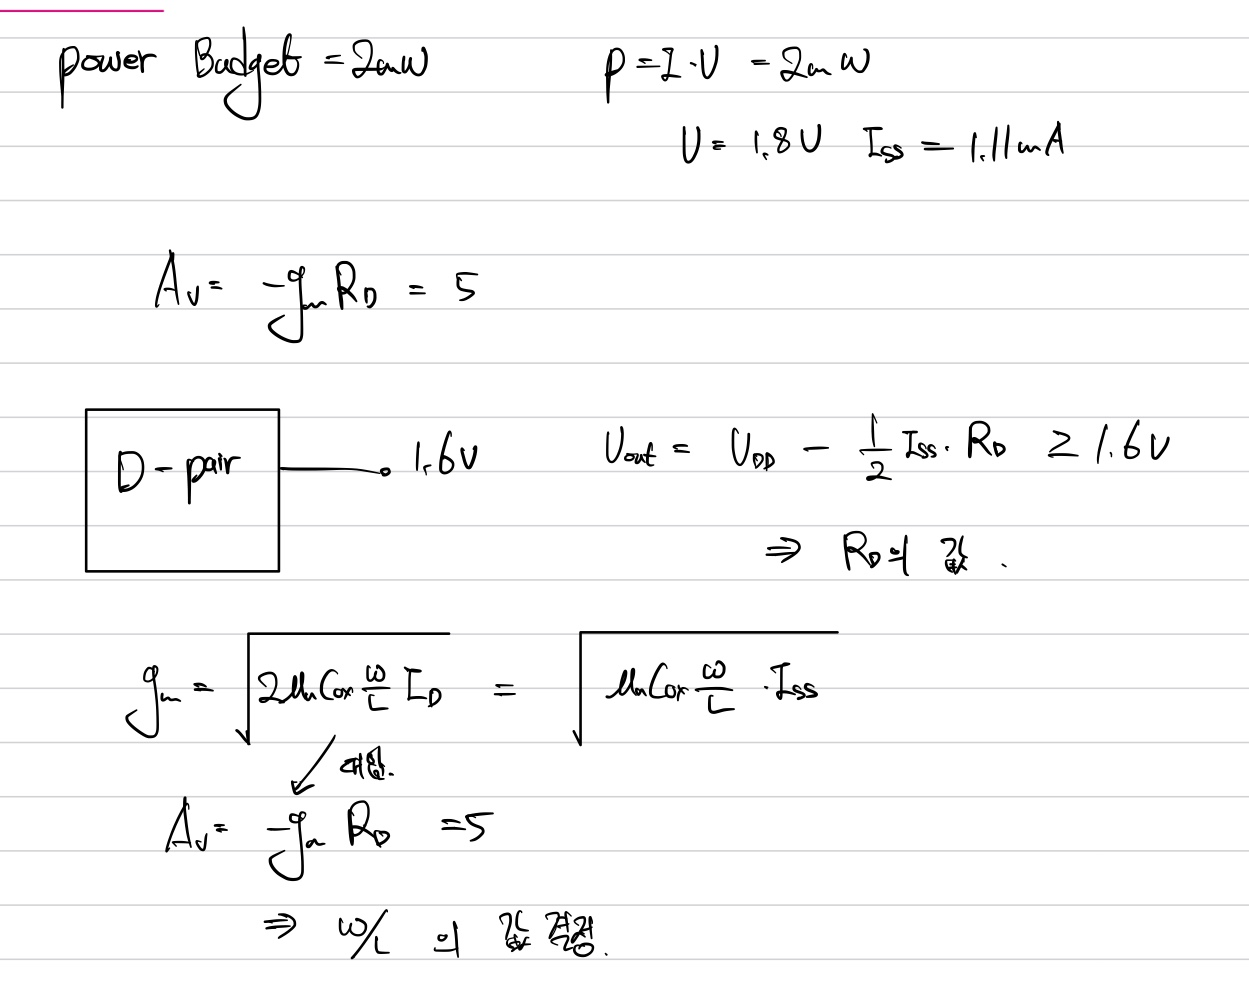 power Budget = 2mW
P = I·V = 2mW
V = 1.8V I_SS = 1.11mA
A_V = -g_m R_D = 5
D-pair 1.6V
V_out = V_DD - 1/2 I_SS · R_D ≥ 1.6V
⇒ R_D의 값.
g_m = √(2μ_n C_ox W/L I_D) = √(μ_n C_ox W/L · I_SS)
대입.
A_V = -g_m R_D = 5
⇒ W/L 의 값 결정.